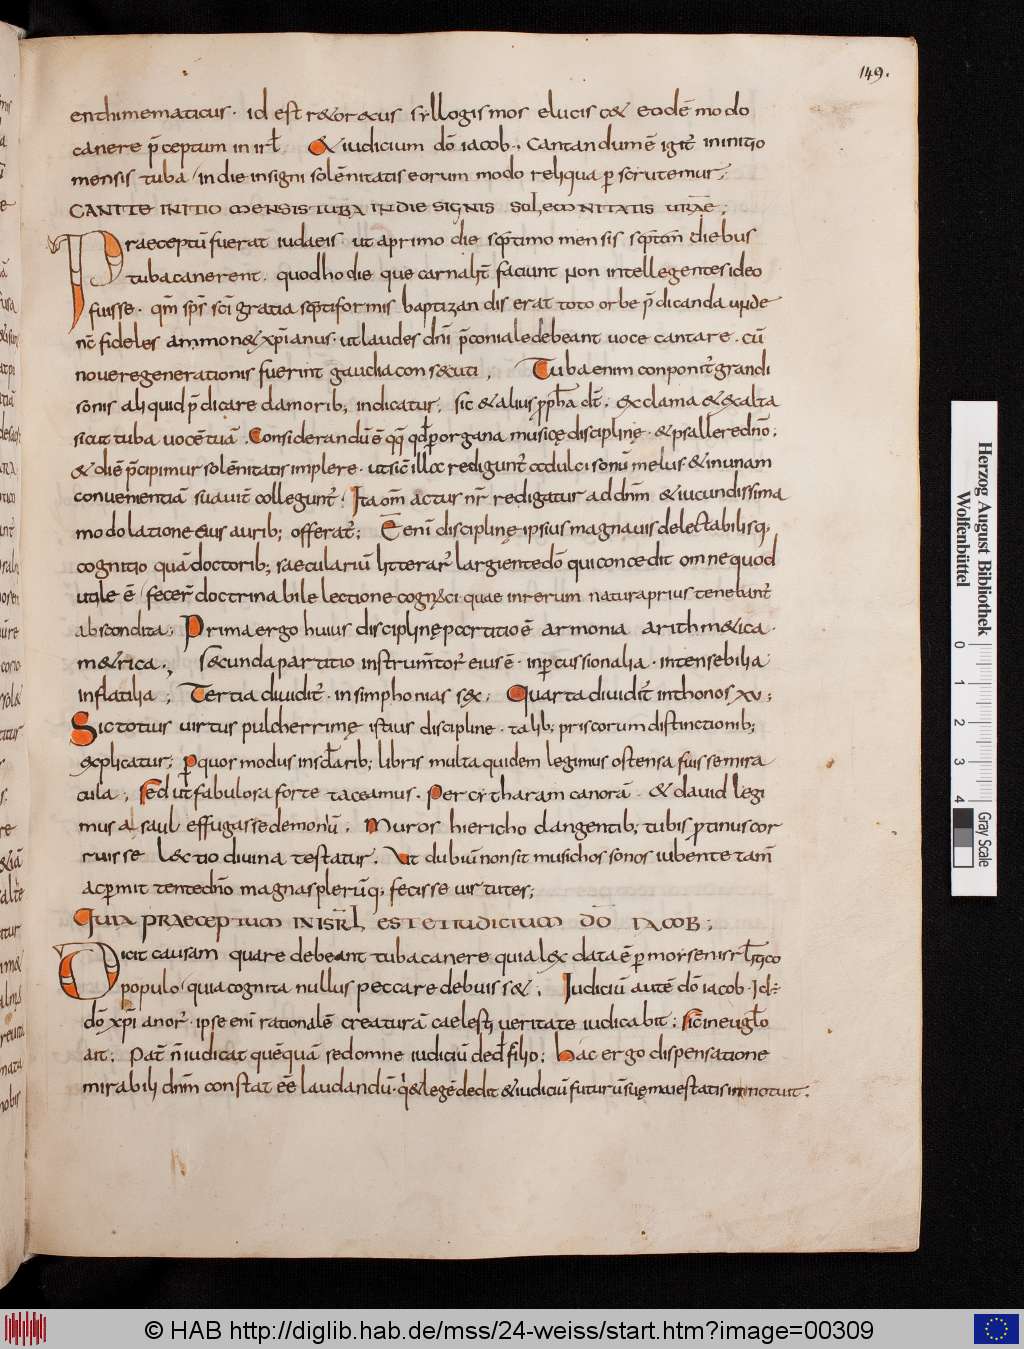 149.
enthimematicus · id est rethoricus syllogismos elucescet eodē modo
canere p̄ceptum in isrl̄ & iudicium dō iacob ·, Cantandum ē igit̄ in initio
mensis tuba / in die insigni solēnitatis eorum modo reliqua p̲scrutemur;
CANITE INITIO MENSIS TUBA IN DIE SIGNIS SOLEMNITATIS VRAE;
Praeceptū fuerat iudaeis · ut a primo die septimo mensis septem diebus
tuba canerent · quod hodie que carnalit̄ faciunt non intellegentes ideo
fuisse · qm̄ sp̄s sc̄i gratia septiformis baptizandis erat toto orbe p̄dicanda unde
nc̄ fideles ammonet xp̄ianus · ut laudes dn̄i p̄coniale debeant uoce cantare · cū
noue regenerationis fuerint gaudia consecuti , Tuba enim conponit̄ grandi
sonis aliquid p̄dicare clamorib; indicatur; sic & alius ppha dt̄ · exclama & exalta
sicut tuba uocē tuā · Considerandū ē qq̄ qd̄ p̲ organa musicę disciplinę · & psallere dn̄o;
& diē p̄cipimur solēnitatis implere · ut sic illoc redigunt̄ ad dulcisonū melus & in unam
conuenientiā suauit̄ collegunt̄; Ita om̄ actus nr̄ redigatur ad dn̄m & iucundissima
modolatione eius aurib; offerat̄; Ē enī disciplinę ipsius magna uis delectabilisq;
cognitio quā doctorib; saeculariū litterar̄ largiente dō qui concedit omne quod
utile ē / fecer̄ doctrinabile lectione cognosci quae in rerum natura prius tenebant̄
abscondita; Prima ergo huius disciplinę partitio ē armonia arithmetica ·
metrica ·, secunda partitio instrum̄tor̄ eius ē · inpercussionalia · intensebilia
inflatilia ; Tertia diuidit̄ · in simphonias sex; Quarta diuidit̄ in thonos xv;
Sic totius uirtus pulcherrimę istius discipline · talib; priscorum distinctionib;
explicatur; p̲ quor modus in sc̄larib; libris multa quidem legimus ostensa fuisse mira
cula; sed ut fabulosa forte taceamus. Per cytharam canorā · & dauid legi
mus a saul effugasse demoniū , Muros hiericho clangentib; tubis p̲tinus cor
ruisse lectio diuina testatur. Ut dubiū non sit musichos sonos iubente tam̄
ac p̲mittente dn̄o magnas plerūq; fecisse uirtutes;
QUIA PRAECEPTUM IN ISRL̄ EST ET IUDICIUM DŌ IACOB;
Dicit causam quare debeant tuba canere quia lex data ē p̲ morsen isrl̄itico
populo / quia cognita nullus peccare debuisset , Iudiciū autē dō iacob · Id ÷
dō xp̄ianor̄ · ipse enī rationalē creaturā caelesti ueritate iudicabit; sic̄ in euglō
ait; Pat̄ n̄ iudicat quēquā sed omne iudiciū ded̄ filio; hac ergo dispensatione
mirabili dn̄m constat eē laudandū · q̇ & legē dedit & iudiciū futurū suę maiestatis innotuit.
Herzog August Bibliothek
Wolfenbüttel
0 1 2 3 4
Gray Scale
© HAB http://diglib.hab.de/mss/24-weiss/start.htm?image=00309